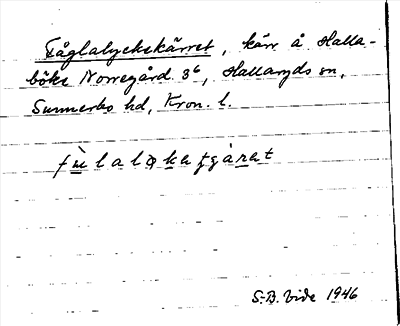 Fåglalyckekärret, kärr å Halla-
böke Norregård 3⁶, Hallaryds sn,
Sunnerbo hd, Kron. l.
S-B. Vide 1946